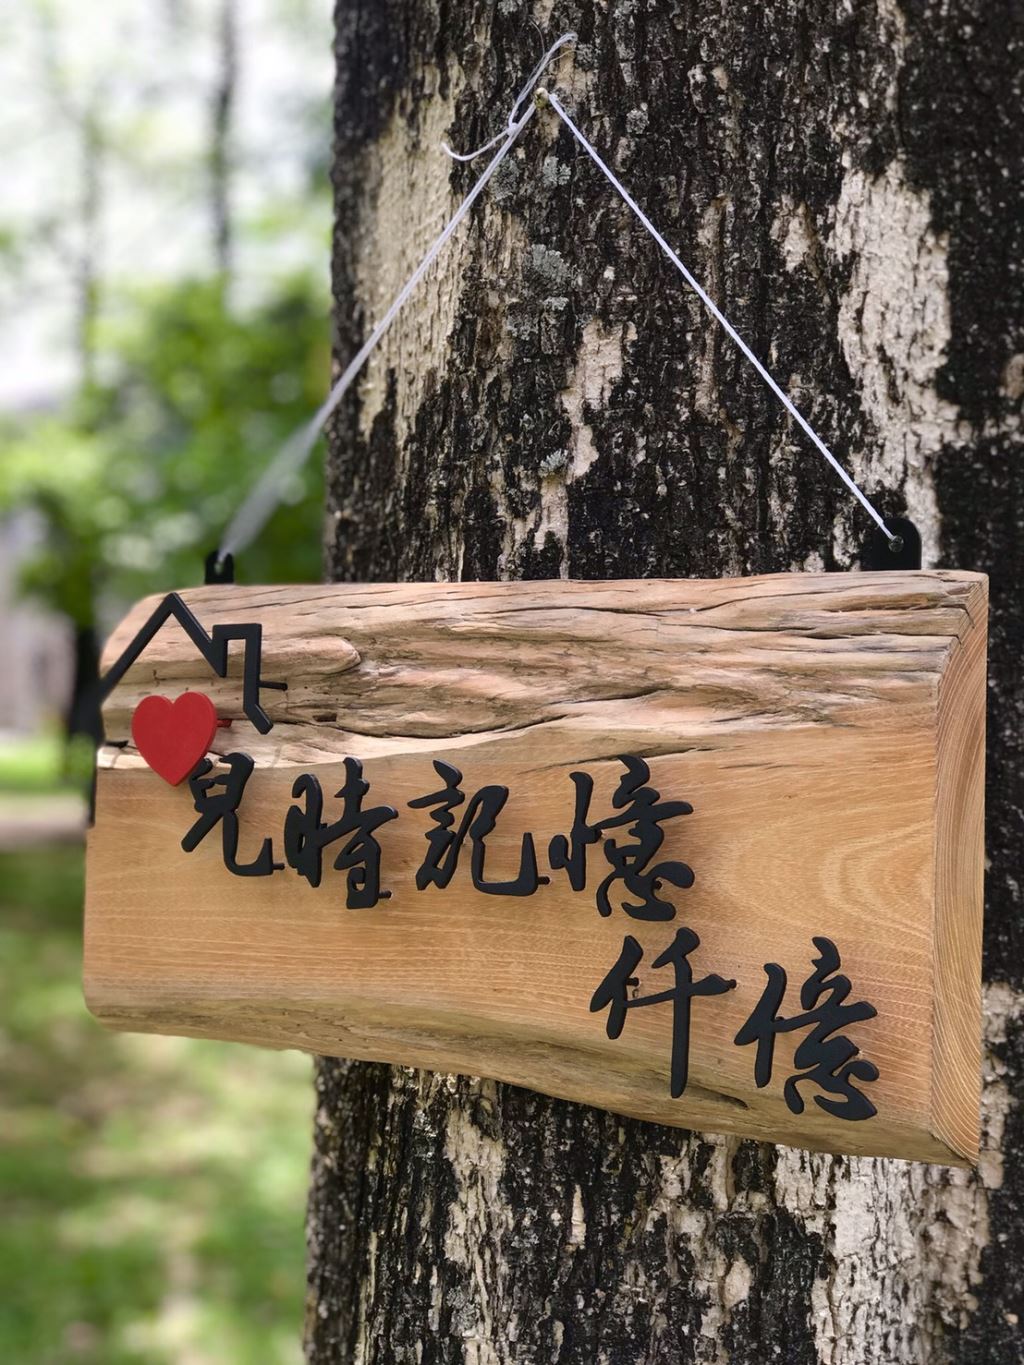 兒時記憶
仟億